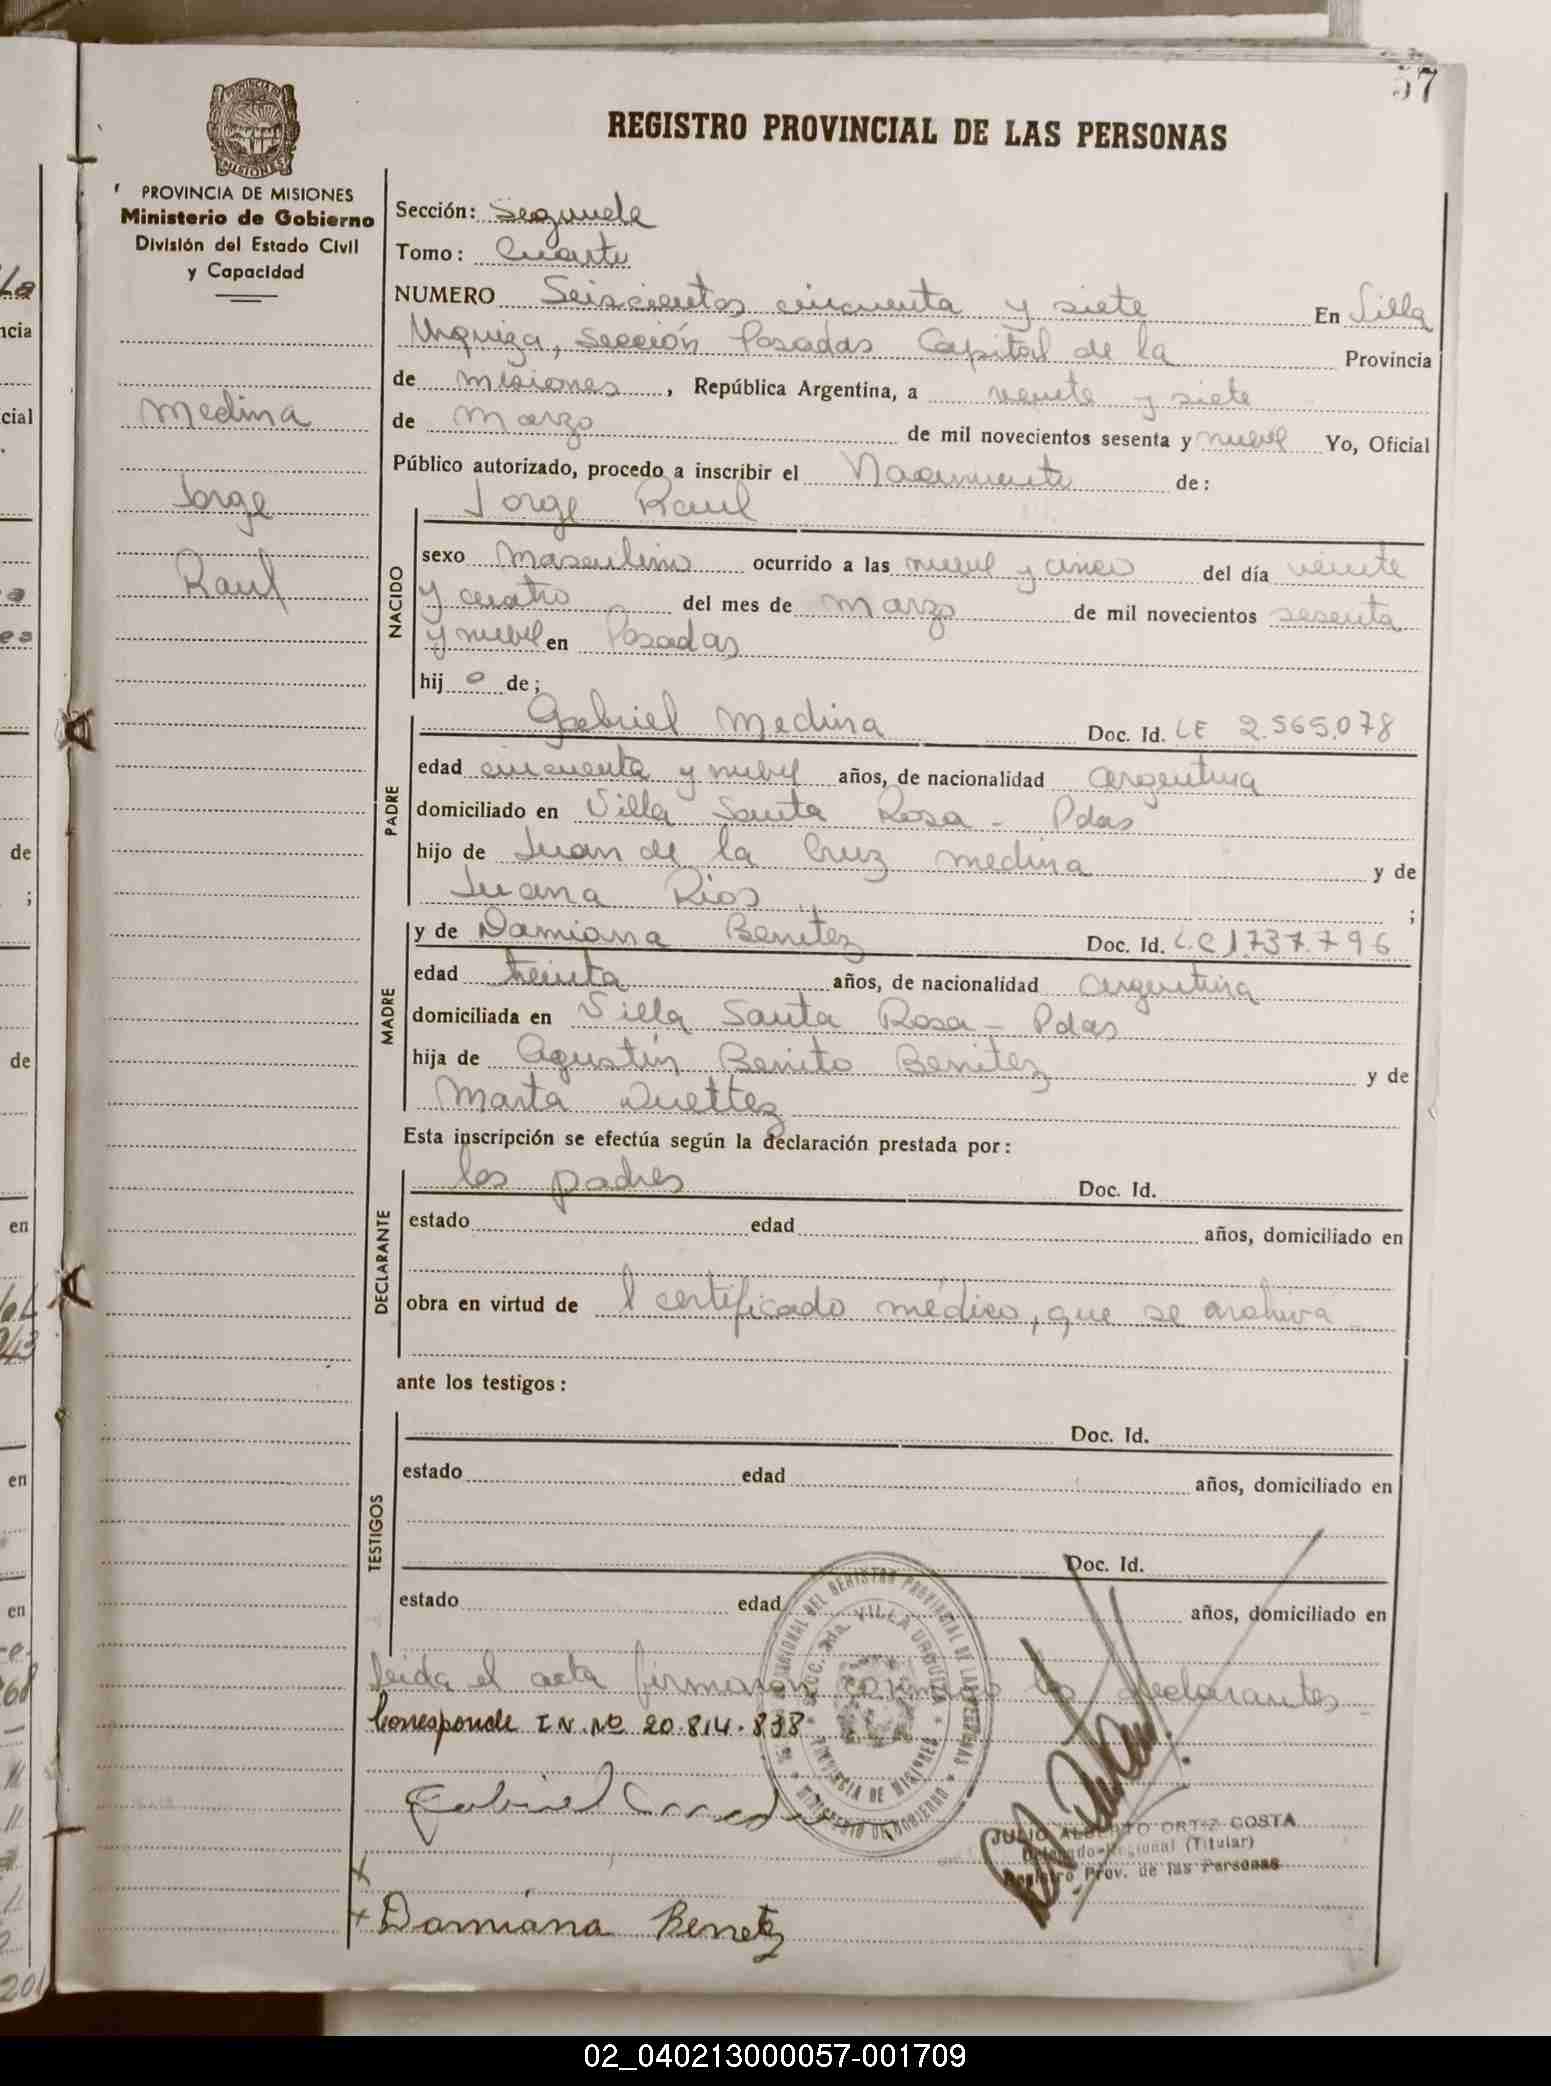 57
REGISTRO PROVINCIAL DE LAS PERSONAS
PROVINCIA DE MISIONES
Ministerio de Gobierno
División del Estado Civil
y Capacidad
Medina
Jorge
Raul
Sección: Segunda
Tomo: Cuarto
NUMERO Seiscientos cincuenta y siete En Villa
Urquiza, Sección Posadas Capital de la Provincia
de Misiones, República Argentina, a veinte y siete
de Marzo de mil novecientos sesenta y nueve Yo, Oficial
Público autorizado, procedo a inscribir el Nacimiento de:
Jorge Raul
NACIDO
sexo Masculino ocurrido a las nueve y cinco del día veinte
y cuatro del mes de Marzo de mil novecientos sesenta
y nueve en Posadas
hij o de;
Gabriel Medina Doc. Id. LE 2.565.078
PADRE
edad cincuenta y nueve años, de nacionalidad argentina
domiciliado en Villa Santa Rosa - Pdas
hijo de Juan de la Cruz Medina y de
Juana Rios ;
MADRE
y de Damiana Benitez Doc. Id. L.C 1.737.796
edad treinta años, de nacionalidad argentina
domiciliada en Villa Santa Rosa - Pdas
hija de Agustín Benito Benitez y de
Marta Duettez
Esta inscripción se efectúa según la declaración prestada por:
DECLARANTE
los padres Doc. Id.
estado edad años, domiciliado en
obra en virtud de l certificado médico, que se archiva
ante los testigos:
TESTIGOS
Doc. Id.
estado edad años, domiciliado en
Doc. Id.
estado edad años, domiciliado en
leida el acta firmaron conmigo los declarantes
Corresponde I.N.Nº 20.814.838
SECC. 2da. VILLA URQUIZA
PROVINCIA DE MISIONES
MINISTERIO DE GOBIERNO
REGISTRO PROVINCIAL DE LAS PERSONAS
Gabriel Medina
JULIO ALBERTO ORTIZ COSTA
Delegado Regional (Titular)
Registro Prov. de las Personas
Damiana Benetez
02_040213000057-001709